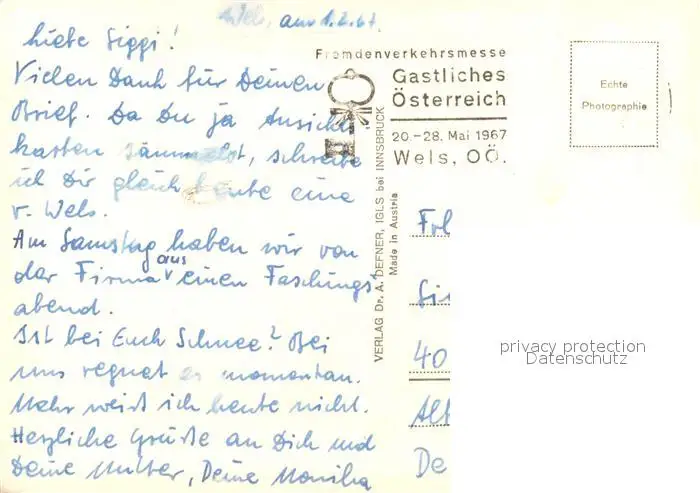 Wels, am 1.2.67.
Liebe Siggi!
Vielen Dank für Deinen
Brief. Da Du ja Ansichts-
karten sammelst, schreibe
ich Dir gleich heute eine
v. Wels.
Am Samstag haben wir von
der Firma aus einen Faschings-
abend.
Ist bei Euch Schnee? Bei
uns regnet es momentan.
Mehr weiß ich heute nicht.
Herzliche Grüße an Dich und
Deine Mutter, Deine Monika
Fremdenverkehrsmesse
Gastliches
Österreich
20.-28. Mai 1967
Wels, OÖ.
Echte
Photographie
VERLAG Dr. A. DEFNER, IGLS bei INNSBRUCK
Made in Austria
Frl
40
Alt
De
privacy protection
Datenschutz